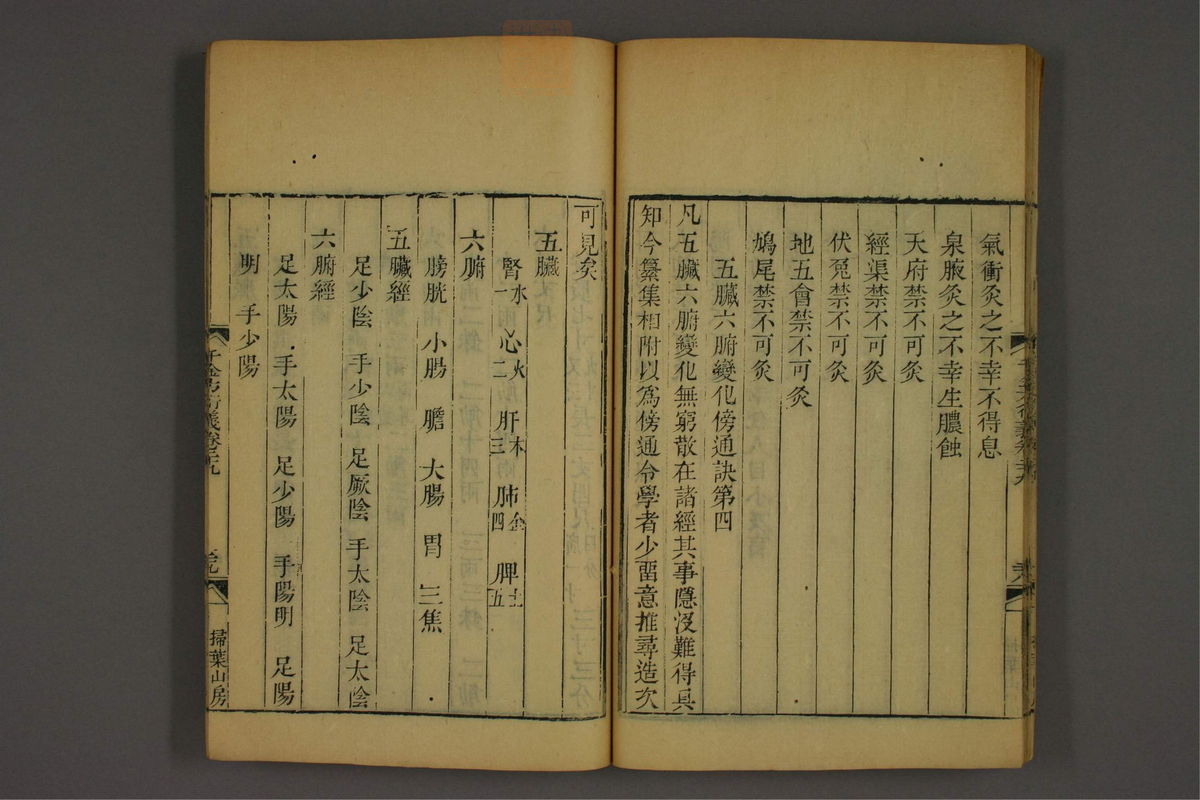 氣衝灸之不幸不得息
泉腋灸之不幸生膿蝕
天府禁不可灸
經渠禁不可灸
伏兔禁不可灸
地五會禁不可灸
鳩尾禁不可灸
五臟六腑變化傍通訣第四
凡五臟六腑變化無窮散在諸經其事隱沒難得具
知今纂集相附以爲傍通令學者少留意推尋造次
可見矣
五臟
腎水一 心火二 肝木三 肺金四 脾土五
六腑
膀胱 小腸 膽 大腸 胃 三焦
五臟經
足少陰 手少陰 足厥陰 手太陰 足太陰
六腑經
足太陽 手太陽 足少陽 手陽明 足陽
明 手少陽
千金方衍義卷之二十九
掃葉山房